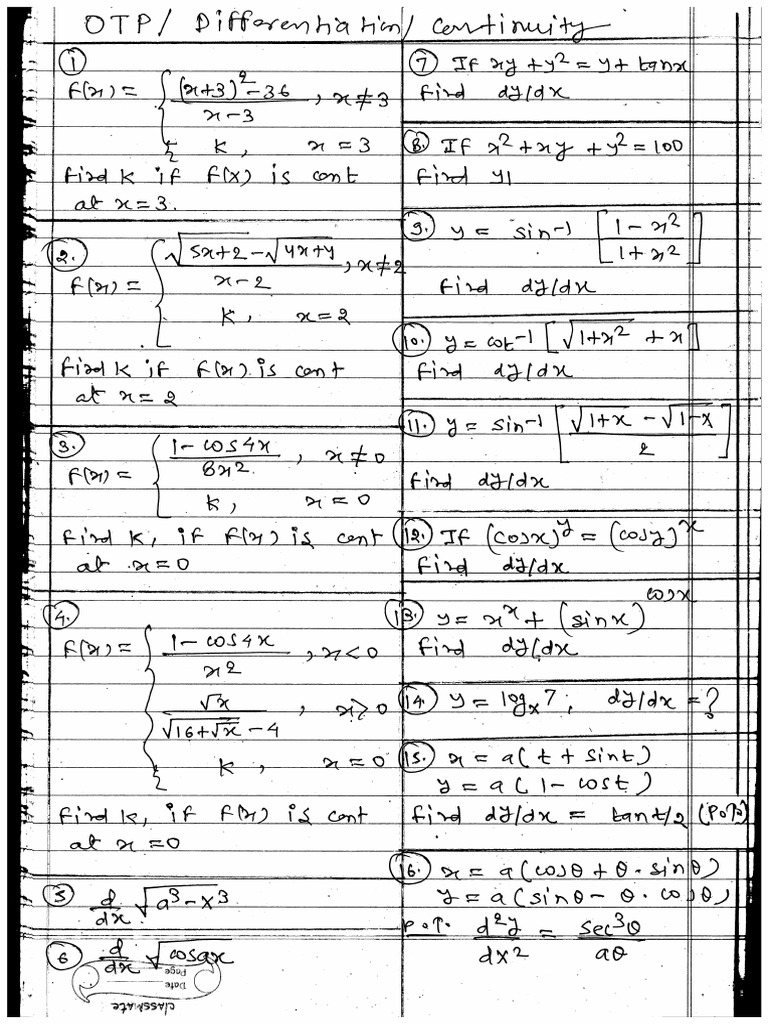 OTP / Differentiation / Continuity
①
F(x) = { (x+3)² - 36 / x - 3 , x ≠ 3
k , x = 3
Find k if F(x) is cont
at x = 3.
②.
F(x) = { √5x+2 - √4x+4 / x - 2 , x ≠ 2
k , x = 2
Find k if F(x) is cont
at x = 2
③.
F(x) = { 1 - cos4x / 8x² , x ≠ 0
k , x = 0
Find k, if F(x) is cont
at x = 0
④.
F(x) = { 1 - cos4x / x² , x < 0
√x / √16+√x - 4 , x > 0
k , x = 0
Find k, if F(x) is cont
at x = 0
⑤ d/dx √a³ - x³
⑥ d/dx √cosax
classmate
Date
Page
⑦ If xy + y² = y + tanx
Find dy/dx
⑧. If x² + xy + y² = 100
Find y1
⑨. y = sin⁻¹ [1 - x² / 1 + x²]
Find dy/dx
⑩. y = cot⁻¹ [√1+x² + x]
Find dy/dx
⑪. y = sin⁻¹ [√1+x - √1-x / 2]
Find dy/dx
⑫. If (cosx)^y = (cosy)^x
Find dy/dx
⑬. y = x^x + (sinx)^cosx
Find dy/dx
⑭ y = log_x 7 ; dy/dx = ?
⑮. x = a(t + sint)
y = a(1 - cost)
Find dy/dx = tant/2 (P.o.T.)
⑯. x = a(cosθ + θ·sinθ)
y = a(sinθ - θ·cosθ)
P.o.T. d²y/dx² = sec³θ/aθ